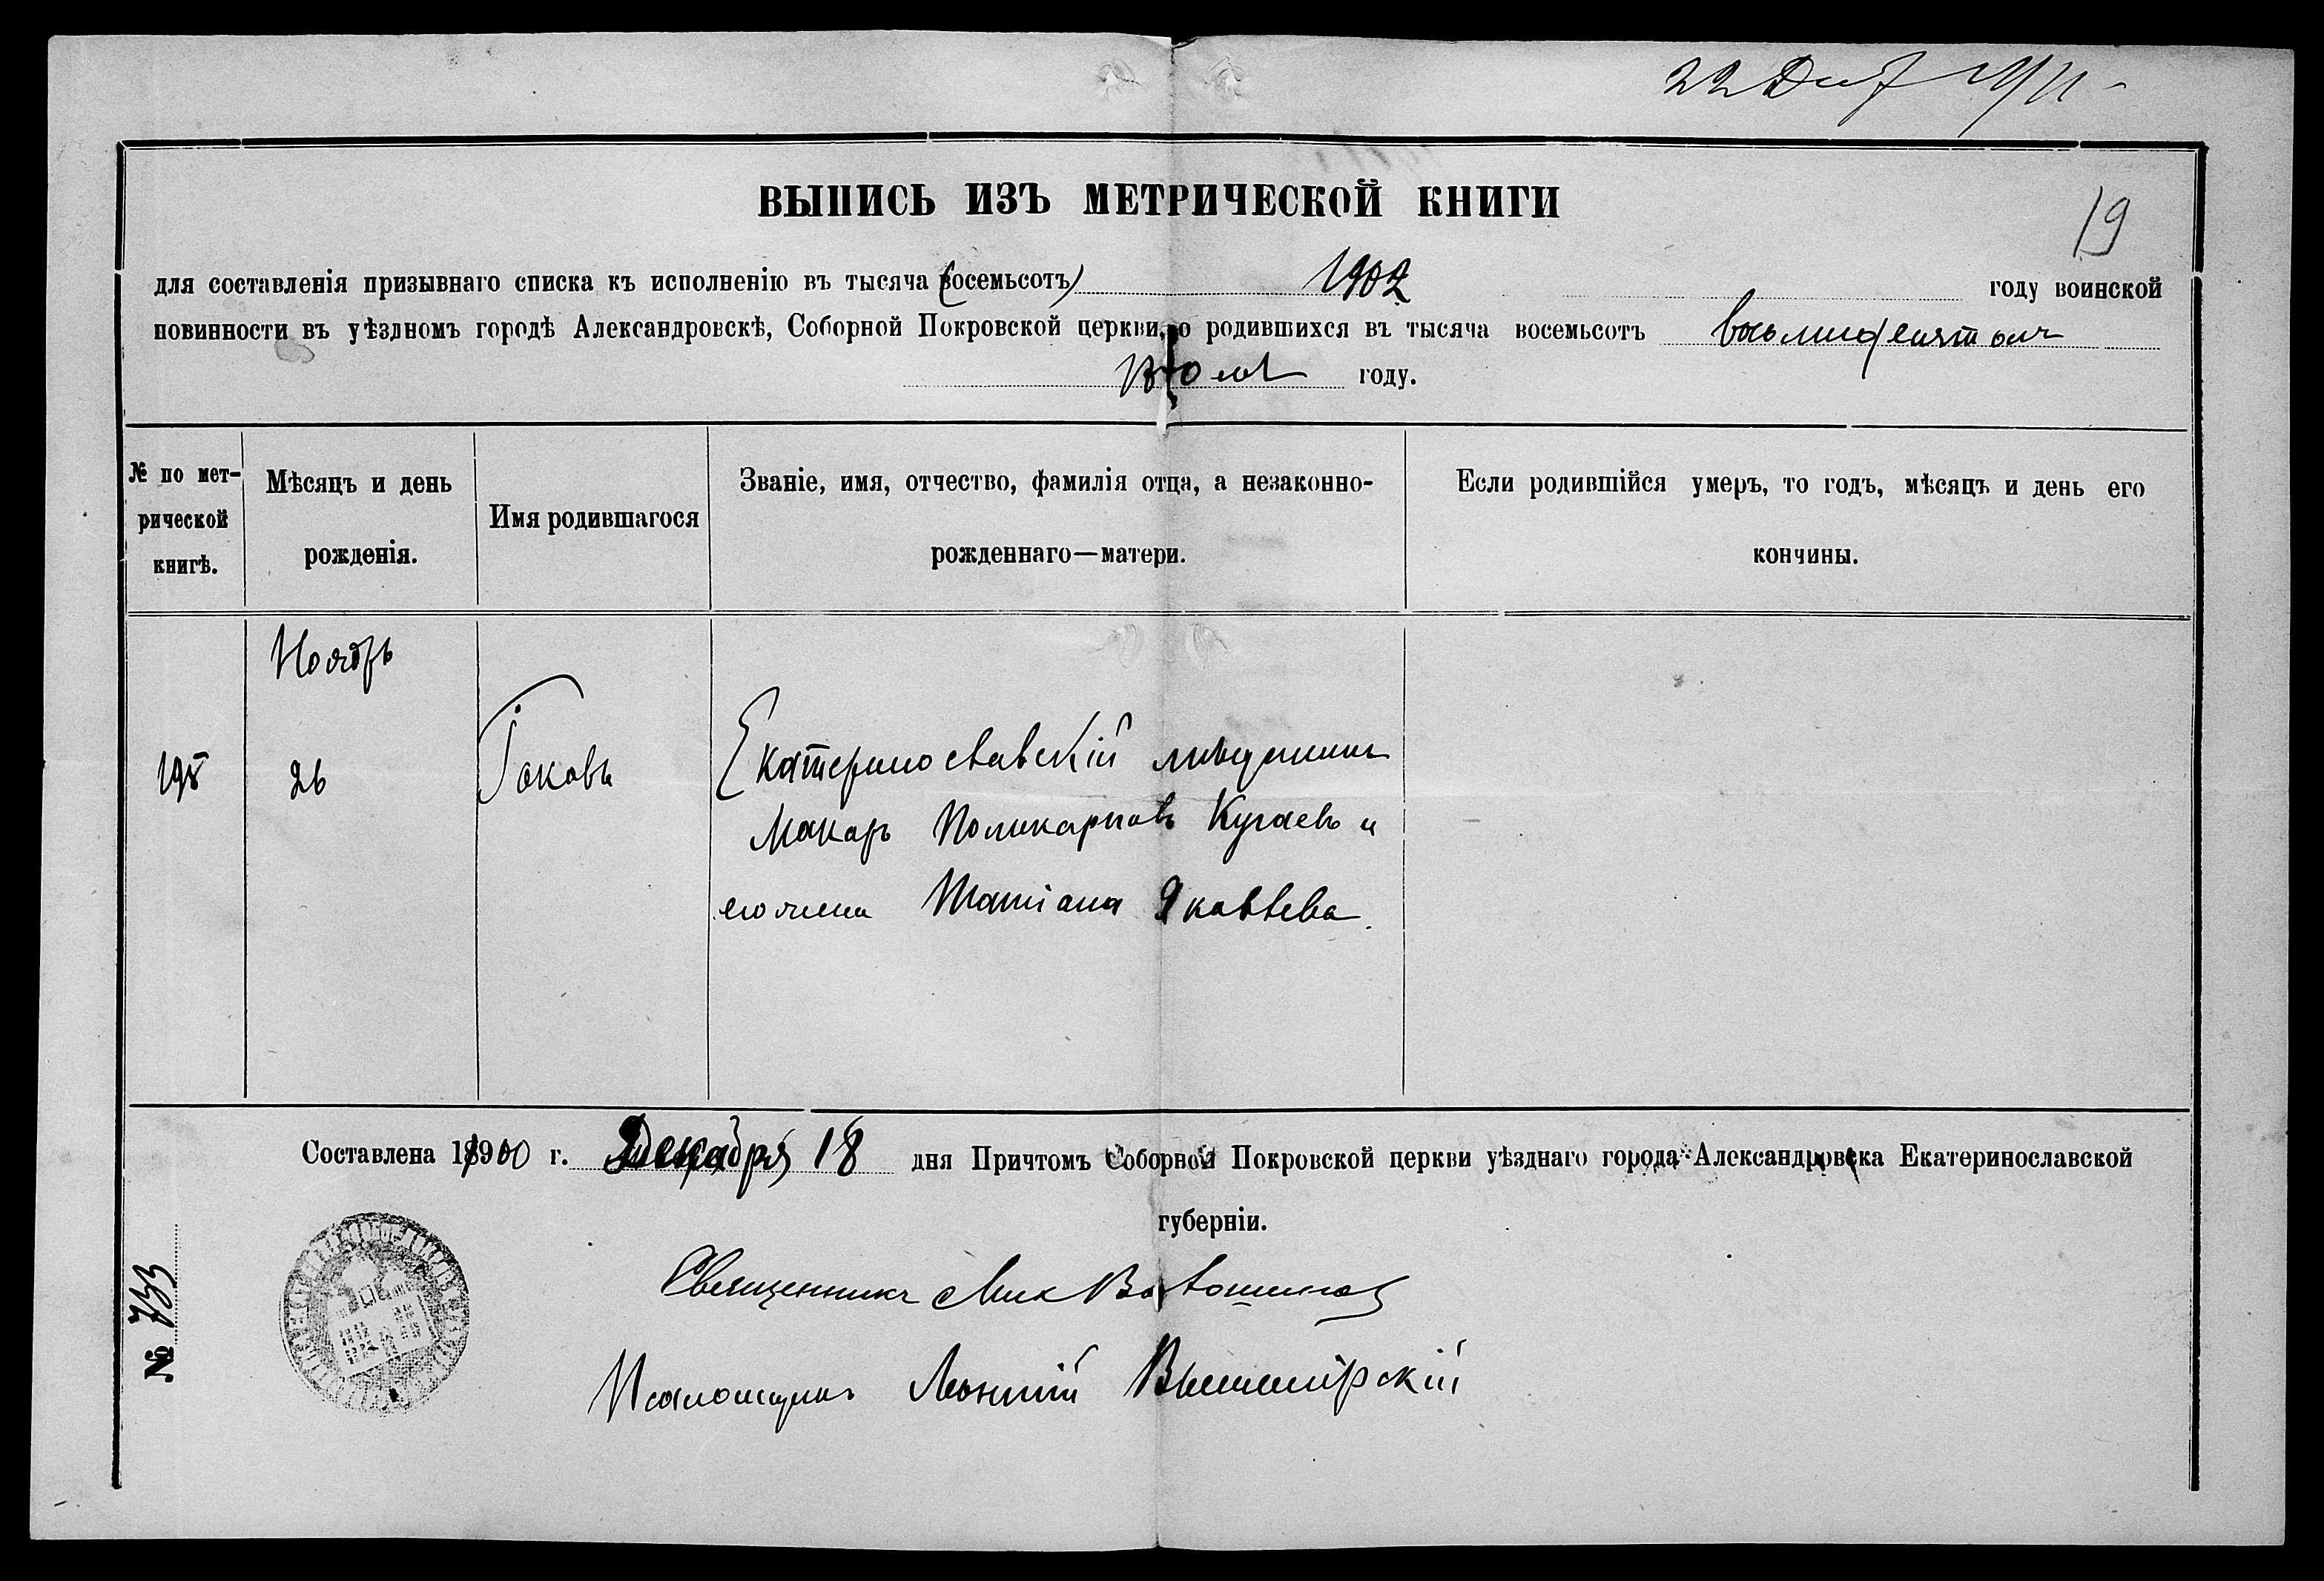 22 Дек 1911
19
ВЫПИСЬ ИЗЪ МЕТРИЧЕСКОЙ КНИГИ
для составленія призывнаго списка къ исполненію въ тысяча (восемьсотъ) 1902 году воинской
повинности въ уѣздномъ городѣ Александровскѣ, Соборной Покровской церкви, о родившихся въ тысяча восемьсотъ восьмидесятомъ
году.
№ по мет-
рической
книгѣ.
Мѣсяцъ и день
рожденія.
Имя родившагося
Званіе, имя, отчество, фамилія отца, а незаконно-
рожденнаго—матери.
Если родившійся умеръ, то годъ, мѣсяцъ и день его
кончины.
Ноябрь
195 26 Іаковъ Екатеринославскій мѣщанинъ
Макаръ Поликарповъ Кугаевъ и
его жена Татіана Яковлева.
Составлена 1900 г. Декабря 18 дня Причтомъ Соборной Покровской церкви уѣзднаго города Александровска Екатеринославской
губерніи.
№ 733
Священникъ Мих Волошиновъ
Псаломщикъ Вышемірскій